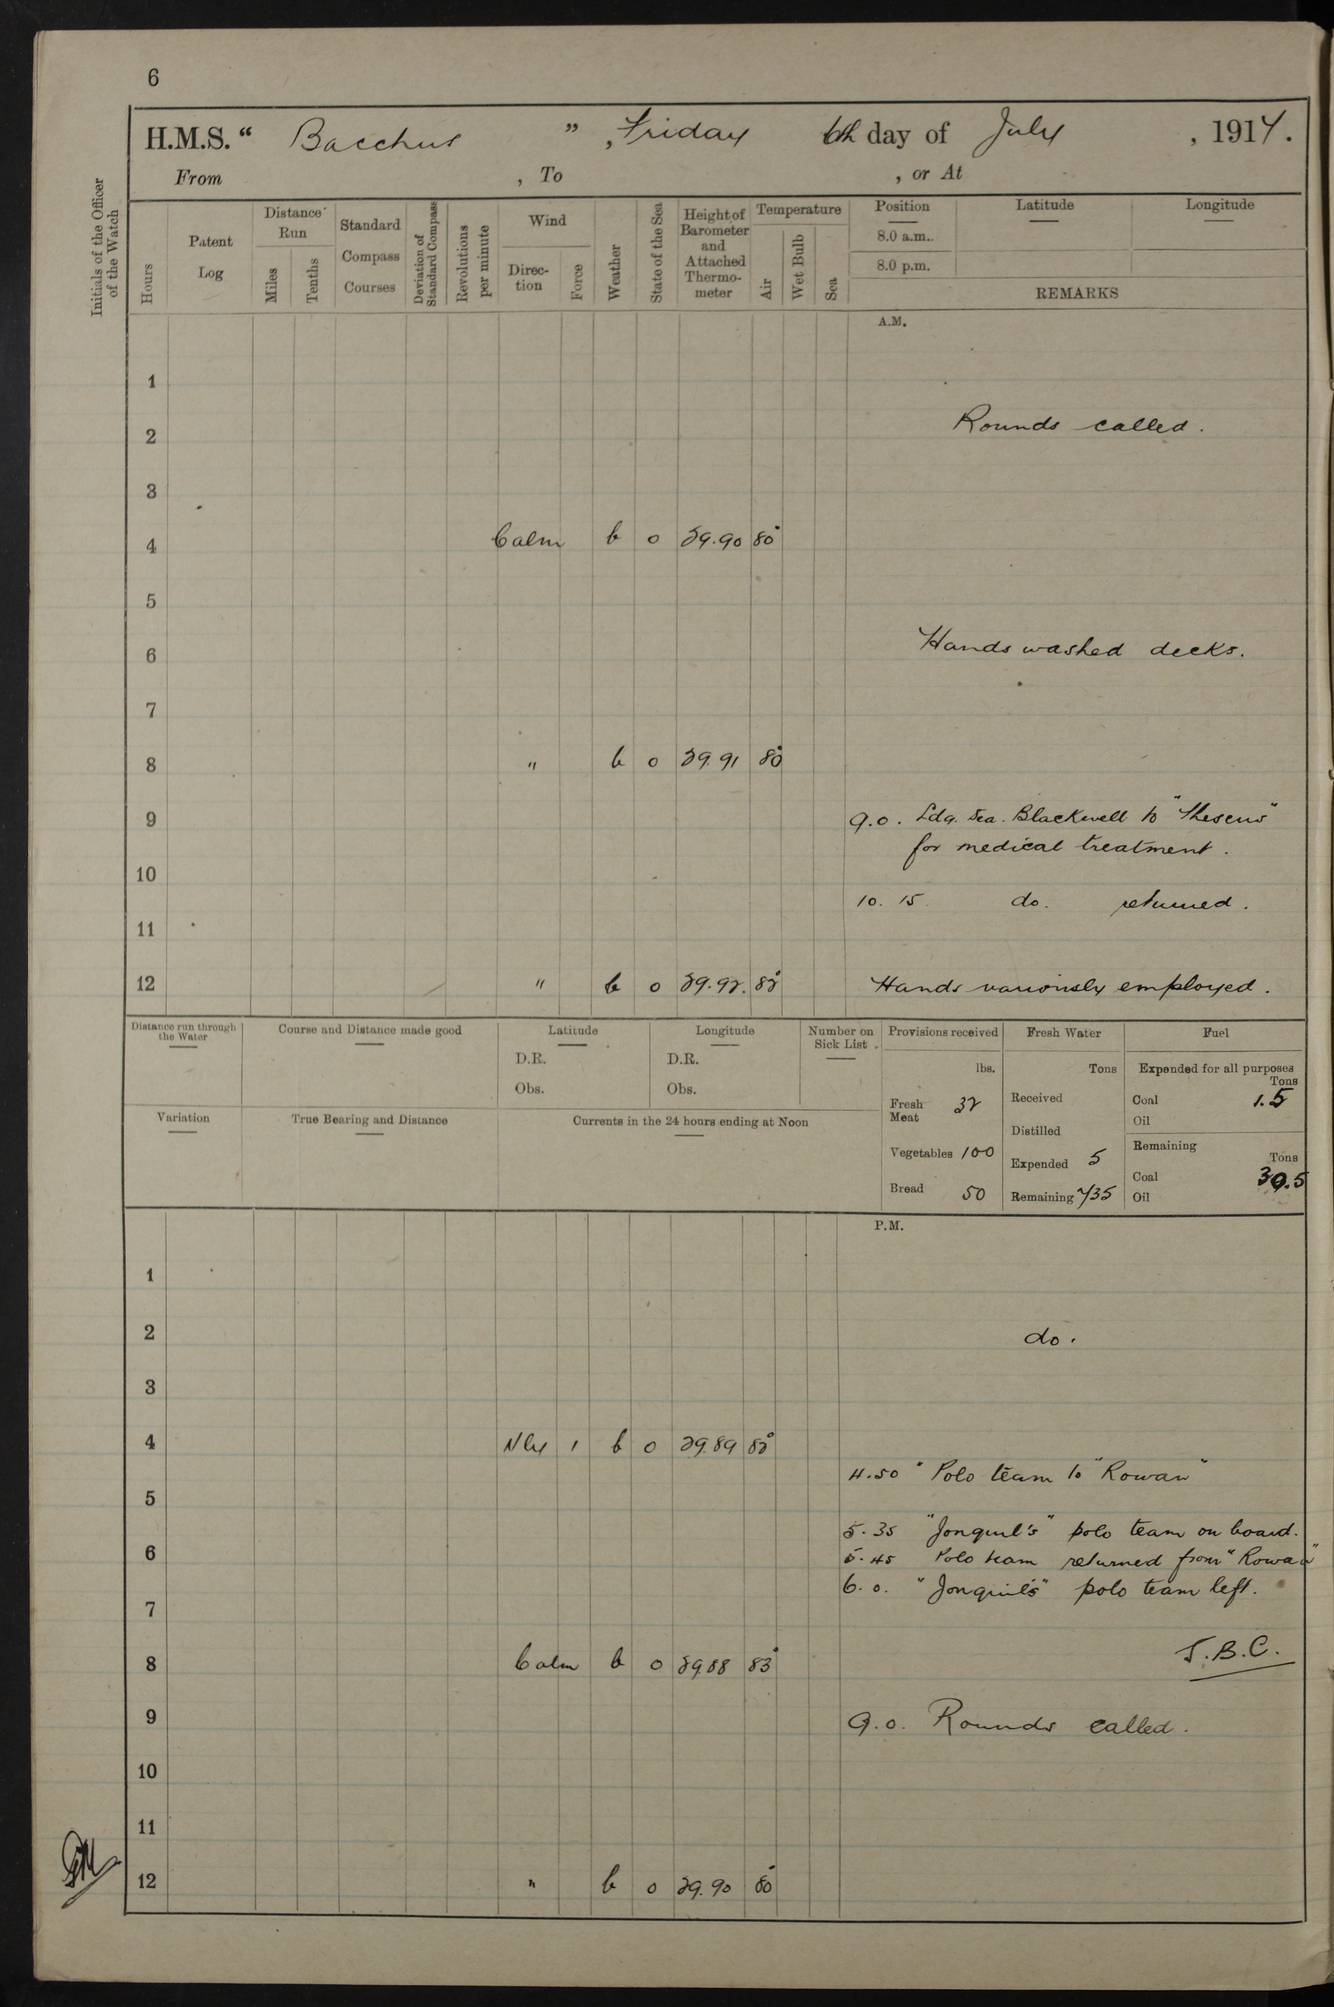 6
H.M.S. “ Bacchus ” , Friday 6th day of July , 1917.
From , To , or At
Initials of the Officer of the Watch
Hours
Patent Log
Distance Run
Miles
Tenths
Standard Compass Courses
Deviation of Standard Compass
Revolutions per minute
Wind
Direction
Force
Weather
State of the Sea
Height of Barometer and Attached Thermometer
Temperature
Air
Wet Bulb
Sea
Position Latitude Longitude
8.0 a.m.
8.0 p.m.
REMARKS
A.M.
1
Rounds called.
2
3
4 Calm b 0 29.90 80°
5
6 Hands washed decks.
7
8 " b 0 29.91 80°
9 9.0. Ldg. Sea. Blackwell to "Theseus"
for medical treatment.
10
10. 15 do. returned.
11
12 " b 0 29.92. 82° Hands variously employed.
Distance run through the Water
Course and Distance made good
Latitude
D.R.
Obs.
Longitude
D.R.
Obs.
Number on Sick List
Provisions received
lbs.
Fresh Meat 32
Vegetables 100
Bread 50
Fresh Water
Tons
Received
Distilled
Expended 5
Remaining 735
Fuel
Expended for all purposes
Tons
Coal 1.5
Oil
Remaining
Tons
Coal 39.5
Oil
Variation
True Bearing and Distance
Currents in the 24 hours ending at Noon
P.M.
1
2 do.
3
4 Nly 1 b 0 29.89 82°
4.50 Polo team to "Rowan"
5
5.35 "Jonquil's" polo team on board.
6 5.45 Polo team returned from "Rowan"
6.0. "Jonquil's" polo team left.
7
8 Calm b 0 29.88 83° J.B.C.
9 9.0. Rounds called.
10
11
12 " b 0 29.90 80°